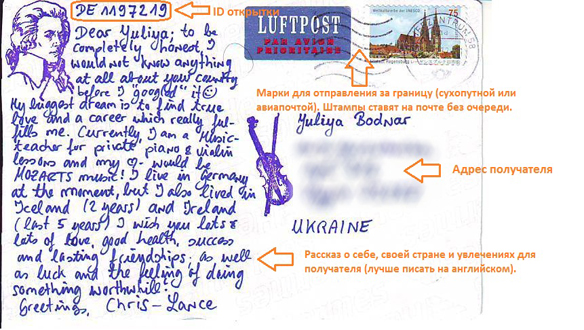 DE 1197219
ID открытки
Dear Yuliya; to be
completely honest, I
would not know anything
at all about your country
before I "googled" it
My biggest dream is to find true
love and a career which really ful-
fills me. Currently, I am a Music-
teacher for private piano & violin
lessons and my would be
MOZARTS music! I live in Germany
at the moment, but I also lived in
Iceland (2 years) and Ireland
(last 5 years) I wish you lots &
lots of love, good health, success
and lasting friendships; as well
as luck and the feeling of doing
something worthwhile!
Greetings, Chris-Lance
LUFTPOST
PAR AVION
PRIORITAIRE
75
Марки для отправления за границу (сухопутной или
авиапочтой). Штампы ставят на почте без очереди.
Yuliya Bodnar
Адрес получателя
UKRAINE
Рассказ о себе, своей стране и увлечениях для
получателя (лучше писать на английском).